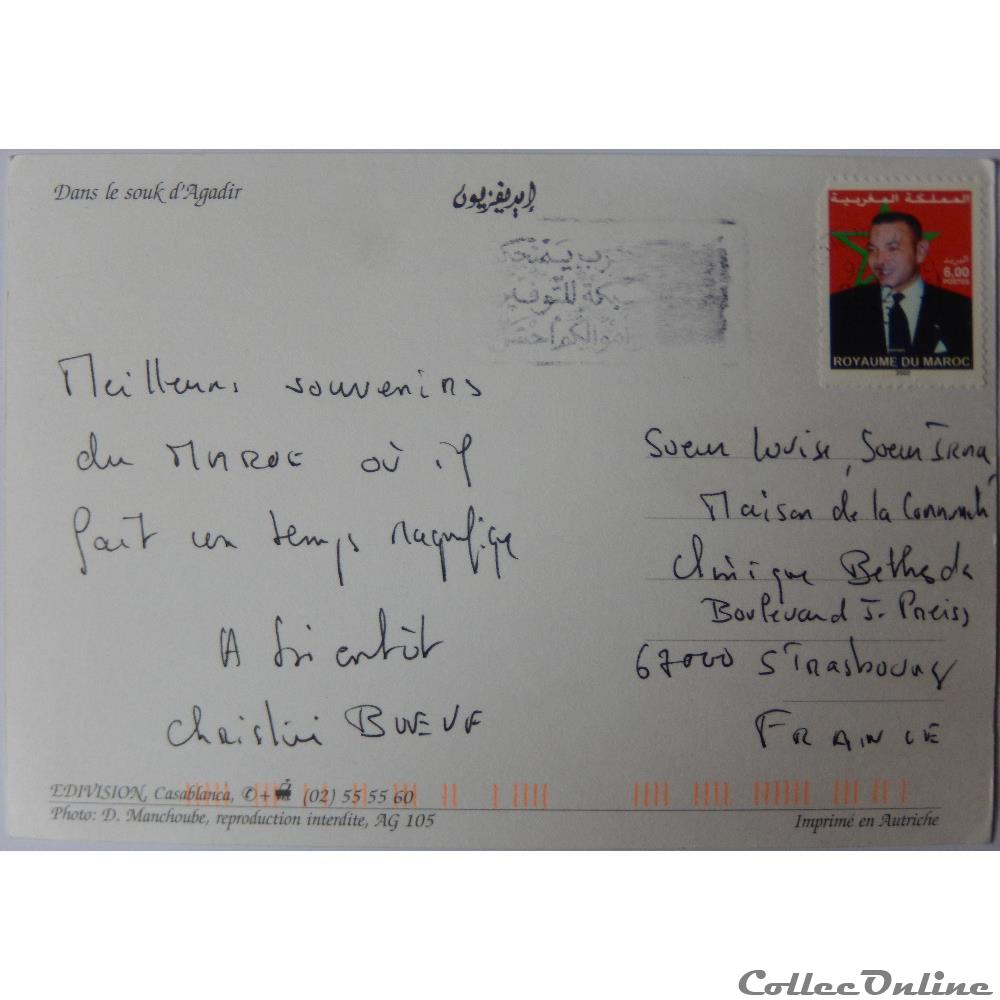 Dans le souk d'Agadir
إيديفزيون
المملكة المغربية
البريد
6,00
POSTES
ROYAUME DU MAROC
2002
Meilleurs souvenirs
du MAROC où il
fait un temps magnifique
A bientôt
Christine BUEUF
Soeur Louise, Soeur Irma
Maison de la
Clinique Bethesda
Boulevard J. Preiss
67000 Strasbourg
FRANCE
EDIVISION, Casablanca, ✆+ (02) 55 55 60
Photo: D. Manchoube, reproduction interdite, AG 105
Imprimé en Autriche
CollecOnline